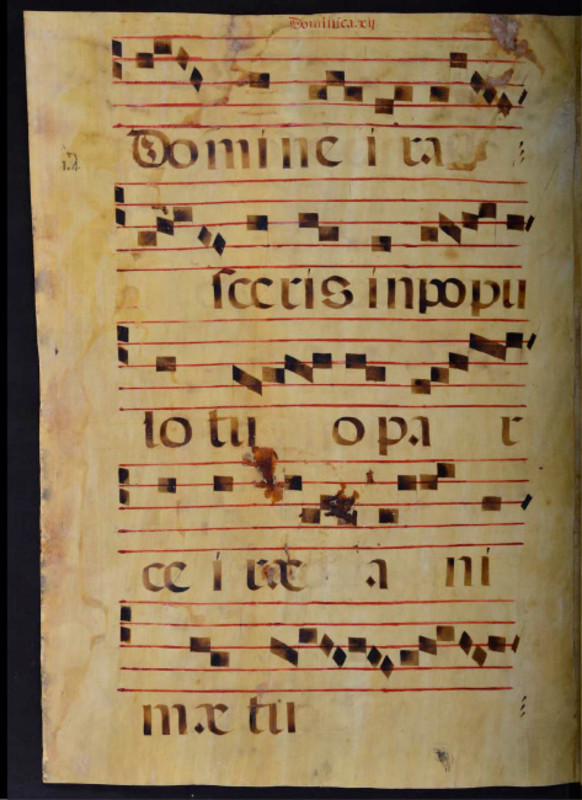 Dominica.xij
Domine i ra
sceris in popu
lo tu o pa r
ce iræ a ni
mæ tu